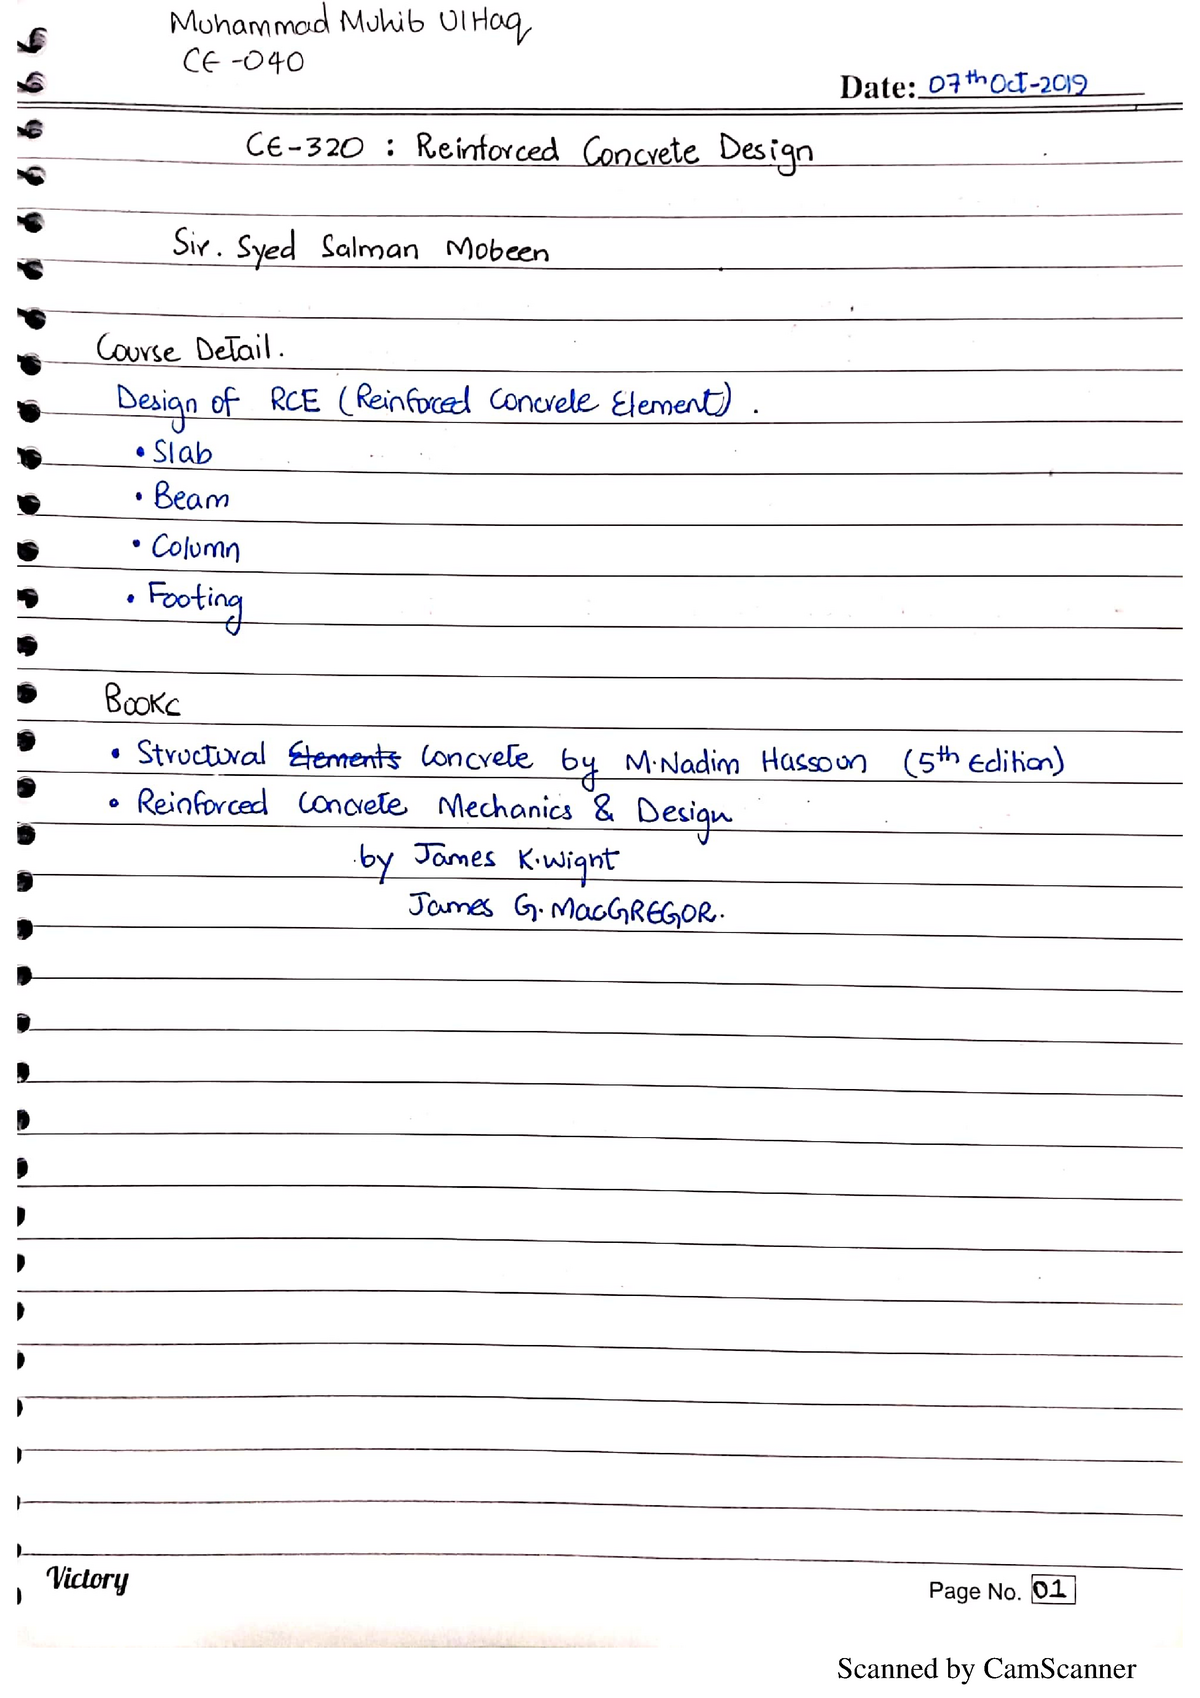 Muhammad Muhib Ul Haq
CE-040
Date: 07th Oct-2019
CE-320 : Reinforced Concrete Design
Sir. Syed Salman Mobeen
Course Detail.
Design of RCE (Reinforced Concrete Element).
• Slab
• Beam
• Column
• Footing
Books
• Structural Elements Concrete by M.Nadim Hassoun (5th Edition)
• Reinforced Concrete Mechanics & Design
by James K.Wight
James G. MacGREGOR.
Victory
Page No. 01
Scanned by CamScanner